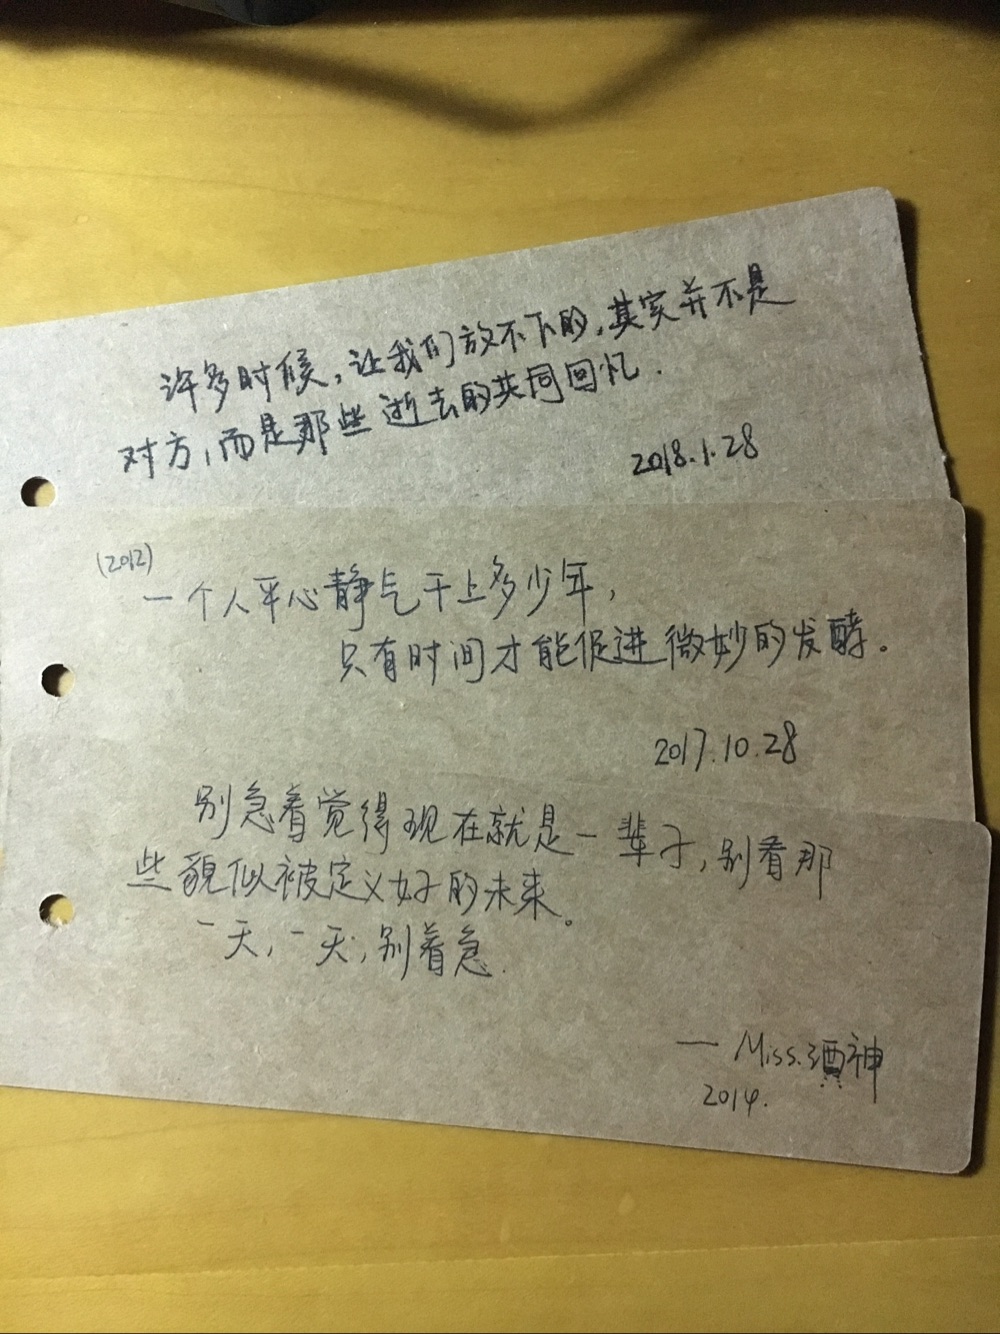 许多时候，让我们放不下的，其实并不是
对方，而是那些逝去的共同回忆.
2018.1.28
(2012)
一个人平心静气干上多少年，
只有时间才能促进微妙的发酵。
2017.10.28
别急着觉得现在就是一辈子，别看那
些貌似被定义好的未来。
一天，一天，别着急.
— Miss.酒神
2014.